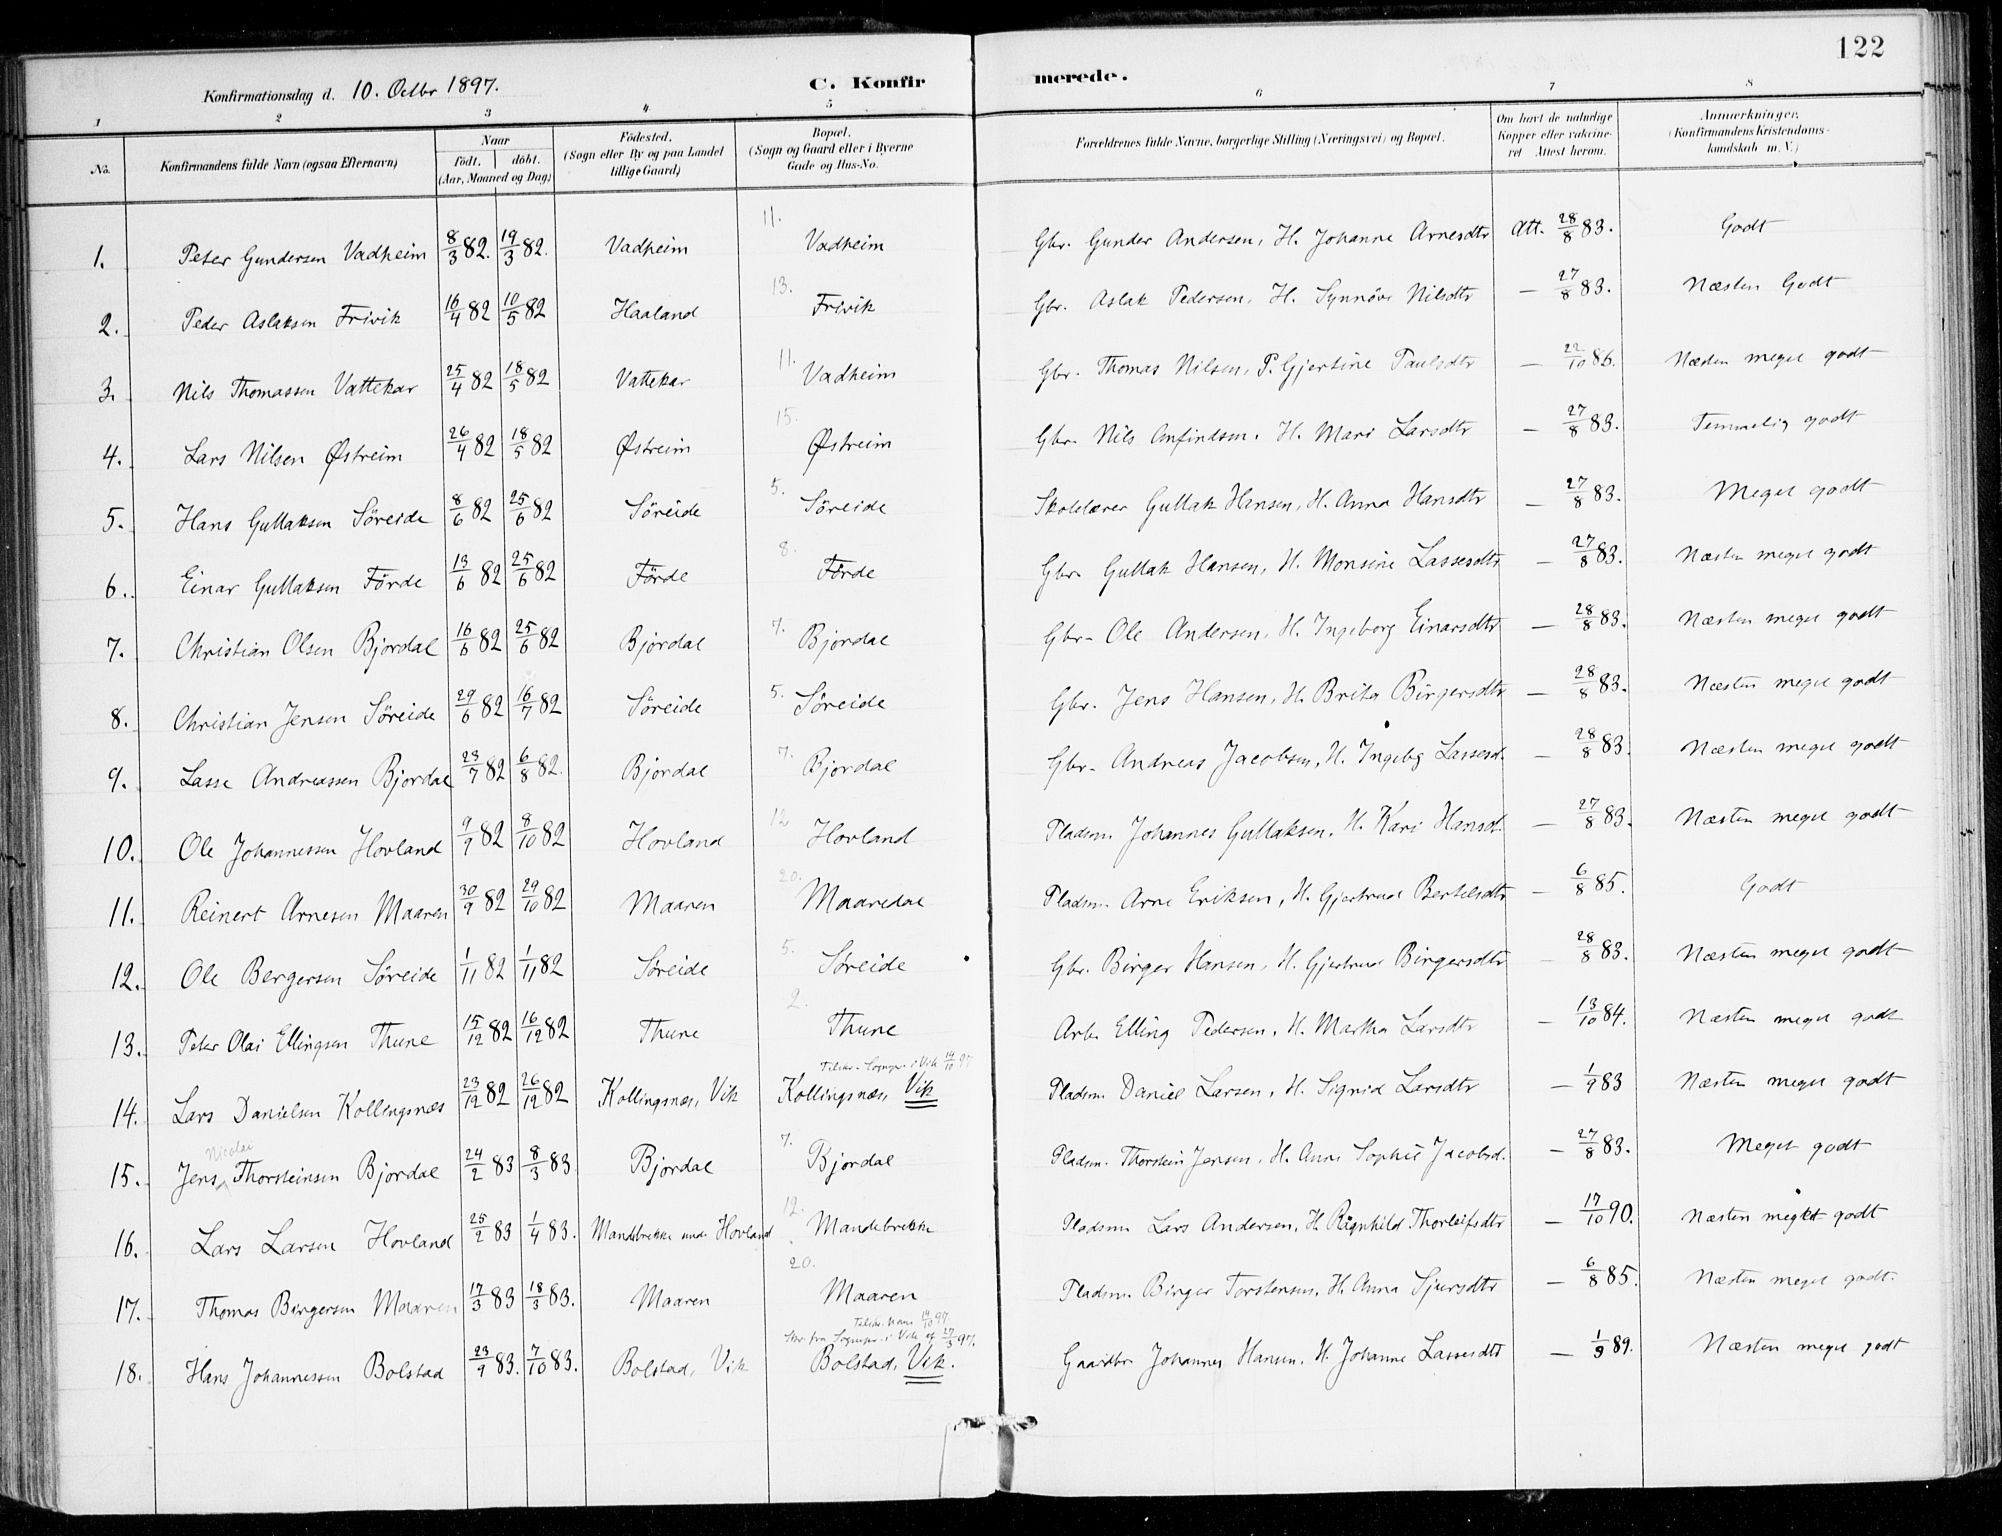 122
Konfirmationsdag d. 10. Octbr 1897. C. Konfirmerede.
1 2 3 4 5 6 7 8
No. Konfirmandens fulde Navn (ogsaa Efternavn) Naar födt. döbt. (Aar, Maaned og Dag) Födested. (Sogn eller By og paa Landet tillige Gaard) Bopæl. (Sogn og Gaard eller i Byerne Gade og Hus-No. Forældrenes fulde Navne, borgerlige Stilling (Næringsvei) og Bopæl. Om havt de naturlige Kopper eller vakcineret Attest herom. Anmærkninger. (Konfirmandens Kristendomskundskab m. V.)
1. Peter Gundersen Vadheim 8/3 82. 19/3 82. Vadheim 11. Vadheim Gbr. Gunder Andersen, H. Johanne Arnesdtr Att. 28/8 83. Godt
2. Peder Aslaksen Frivik 16/4 82 10/5 82 Haaland 13. Frivik Gbr. Aslak Pedersen, H. Synnöve Nilsdtr — 27/8 83. Næsten Godt
3. Nils Thomassen Vattekar 25/4 82 18/5 82 Vattekar 11. Vadheim Gbr. Thomas Nilsen, P. Gjertine Paulsdtr — 22/10 86. Næsten meget godt
4. Lars Nilsen Østreim 26/4 82 18/5 82 Østreim 15. Østreim Gbr. Nils Anfindsen, H. Mari Larsdtr — 27/8 83. Temmelig godt
5. Hans Gullaksen Söreide 8/6 82 25/6 82 Söreide 5. Söreide Skolelærer Gullak Hansen, H. Anna Hansdtr — 27/8 83. Meget godt
6. Einar Gullaksen Förde 13/6 82 25/6 82 Förde 8. Förde Gbr. Gullak Hansen, H. Monsine Lassesdtr — 27/8 83. Næsten meget godt
7. Christian Olsen Bjordal 16/6 82 25/6 82 Bjordal 7. Bjordal Gbr. Ole Andersen, H. Ingeborg Einarsdtr — 28/8 83. Næsten meget godt
8. Christian Jensen Söreide 29/6 82 16/7 82 Söreide 5. Söreide Gbr. Jens Hansen, H. Brita Birgersdtr — 28/8 83. Næsten meget godt
9. Lasse Andreassen Bjordal 23/7 82 6/8 82. Bjordal 7. Bjordal Gbr. Andreas Jacobsen, H. Ingebg Lassesd. — 28/8 83. Næsten meget godt
10. Ole Johannessen Hovland 9/9 82 8/10 82 Hovland 12 Hovland Pladsm. Johannes Gullaksen, H. Kari Hansd. — 27/8 83. Næsten meget godt
11. Reinert Arnesen Maaren 30/9 82 29/10 82 Maaren 20. Maaredal Pladsm. Arne Eriksen, H. Gjertrud Bertelsdtr — 6/8 85. Godt
12. Ole Bergersen Söreide 1/11 82 1/11 82 Söreide 5. Söreide Gbr. Birger Hansen, H. Gjertrud Birgersdtr — 28/8 83. Næsten meget godt
13. Peter Olai Ellingsen Thune 15/12 82 16/12 82 Thune 2. Thune Arb. Elling Pedersen, H. Martha Larsdtr — 13/10 84. Næsten meget godt
14. Lars Danielsen Kollingsnæs 23/12 82 26/12 82 Kollingsnæs, Vik Tilskr. Sognepr. i Vik 14/10 97 Kollingsnæs, Vik Pladsm. Daniel Larsen, H. Sigrid Larsdtr — 1/9 83 Næsten meget godt
15. Jens Nicolai Thorsteinsen Bjordal 24/2 83 8/3 83. Bjordal 7. Bjordal Pladsm. Thorstein Jensen, H. Anna Sophie Jacobsd. — 27/8 83. Meget godt
16. Lars Larsen Hovland 25/2 83 1/4 83. Mandebrekke under Hovland 12. Mandebrekke Pladsm. Lars Andersen, H. Ragnhild Thorleifsdtr — 17/10 90. Næsten meget godt
17. Thomas Birgersen Maaren 17/3 83 18/3 83. Maaren 20. Maaren Pladsm. Birger Torstensen, H. Anna Sjursdtr — 6/8 85. Næsten meget godt.
18. Hans Johannessen Bolstad 23/9 83. 7/10 83. Bolstad, Vik Tilskr. ham 14/10 97. Skr. fra Sognepr. i Vik af 27/3 97. Bolstad, Vik. Gaardbr. Johannes Hansen, H. Johanne Lassesdtr — 1/9 89. Næsten meget godt